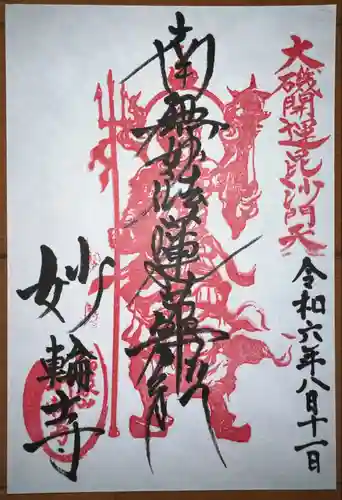 大磯開運毘沙門天
令和六年八月十一日
南無妙法蓮華経
妙輪寺